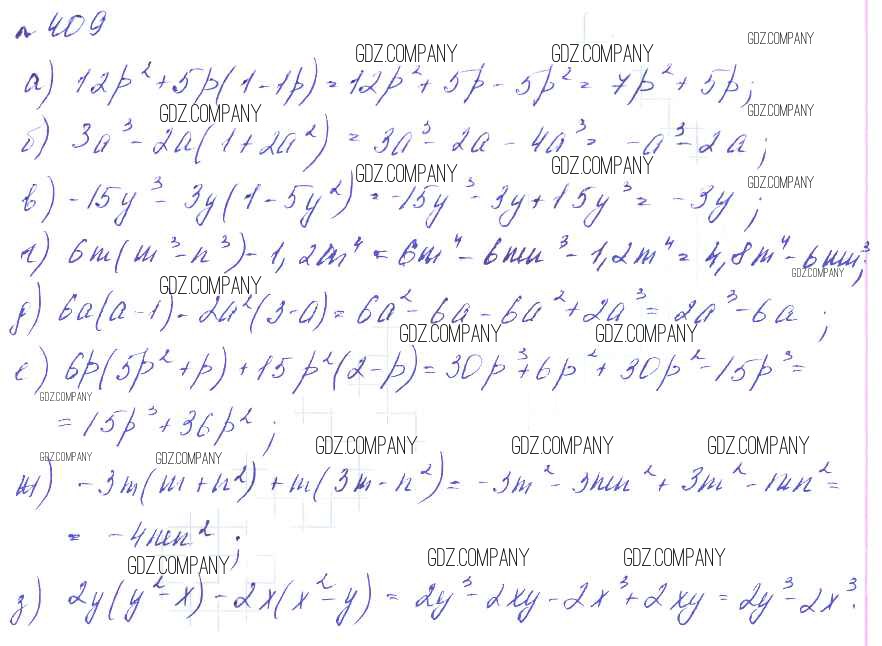 № 409
GDZ.COMPANY GDZ.COMPANY GDZ.COMPANY
а) 12p² + 5p(1 - 1p) = 12p² + 5p - 5p² = 7p² + 5p;
GDZ.COMPANY GDZ.COMPANY
б) 3a³ - 2a(1 + 2a²) = 3a³ - 2a - 4a³ = -a³ - 2a;
GDZ.COMPANY GDZ.COMPANY GDZ.COMPANY
в) -15y³ - 3y(1 - 5y²) = -15y³ - 3y + 15y³ = -3y;
г) 6m(m³ - n³) - 1,2m⁴ = 6m⁴ - 6mn³ - 1,2m⁴ = 4,8m⁴ - 6mn³;
GDZ.COMPANY GDZ.COMPANY
д) 6a(a - 1) - 2a²(3 - a) = 6a² - 6a - 6a² + 2a³ = 2a³ - 6a;
GDZ.COMPANY GDZ.COMPANY
е) 6p(5p² + p) + 15p²(2 - p) = 30p³ + 6p² + 30p² - 15p³ =
GDZ.COMPANY
= 15p³ + 36p²;
GDZ.COMPANY GDZ.COMPANY GDZ.COMPANY
GDZ.COMPANY GDZ.COMPANY
ж) -3m(m + n²) + m(3m - n²) = -3m² - 3mn² + 3m² - mn² =
= -4mn²;
GDZ.COMPANY GDZ.COMPANY GDZ.COMPANY
з) 2y(y² - x) - 2x(x² - y) = 2y³ - 2xy - 2x³ + 2xy = 2y³ - 2x³.